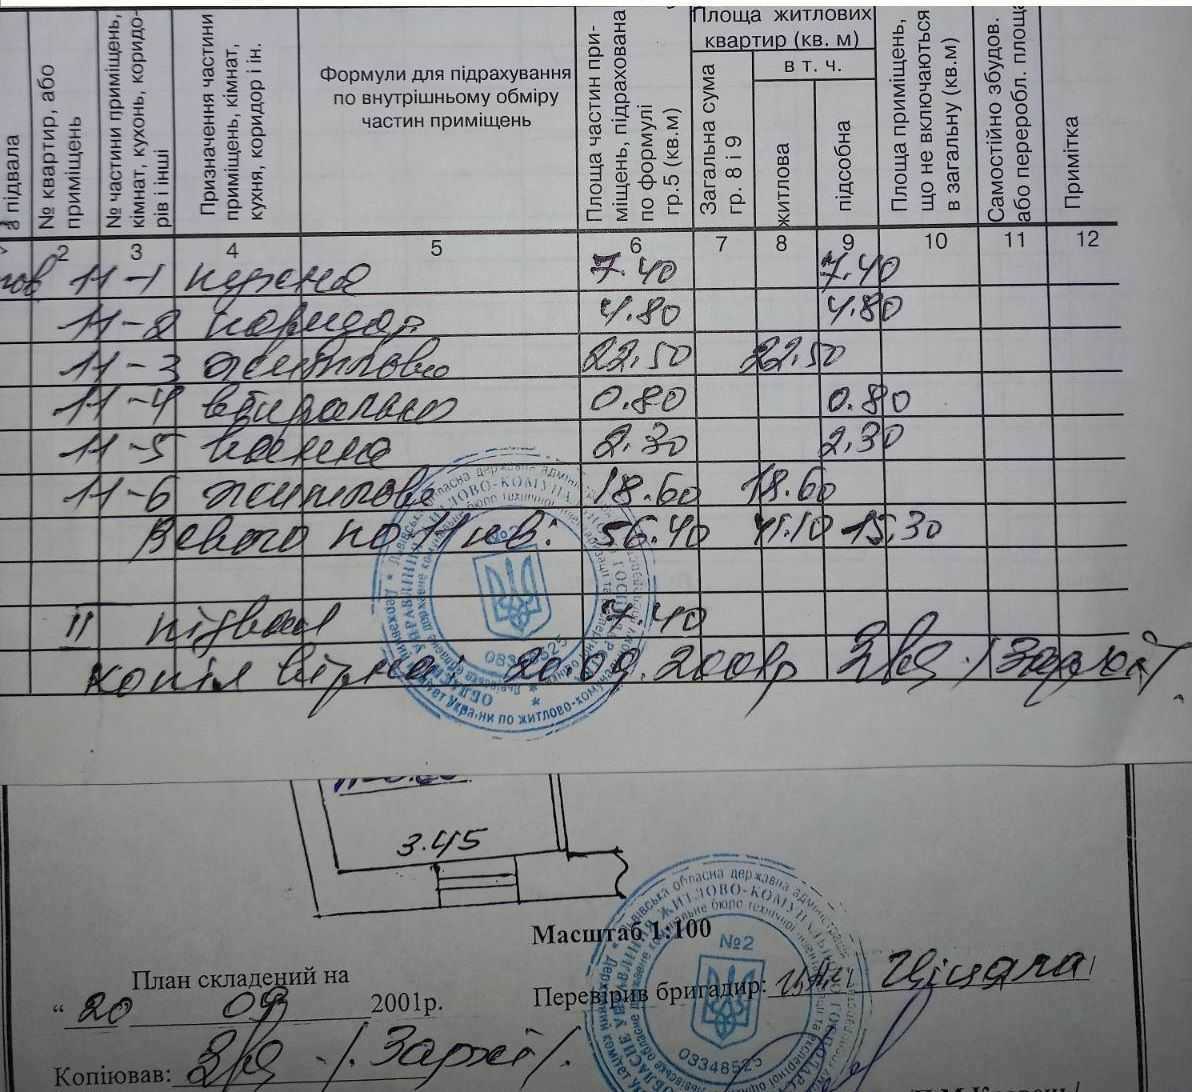 а підвала
№ квартир, або приміщень
№ частини приміщень, кімнат, кухонь, коридо-рів і інші
Призначення частини приміщень, кімнат, кухня, коридор і ін.
Формули для підрахування
по внутрішньому обміру
частин приміщень
Площа частин при-міщень, підрахована по формулі гр.5 (кв.м)
Площа житлових
квартир (кв. м)
Загальна сума гр. 8 і 9
в т. ч.
житлова
підсобна
Площа приміщень, що не включаються в загальну (кв.м)
Самостійно збудов. або переробл. площа
Примітка
2 3 4 5 6 7 8 9 10 11 12
11-1 кухня 7.40 7.40
11-2 коридор 4.80 4.80
11-3 житлова 22.50 22.50
11-4 вбиральня 0.80 0.80
11-5 ванна 2.30 2.30
11-6 житлова 18.60 18.60
Всього по 11 кв: 56.40 41.10 15.30
II підвал 7.40
Копія вірна: 20.09.2001р
№2
03348525
3.45
Масштаб 1:100
План складений на
“ 20 09 2001р.
Перевірив бригадир:
Копіював:
№2
03348525